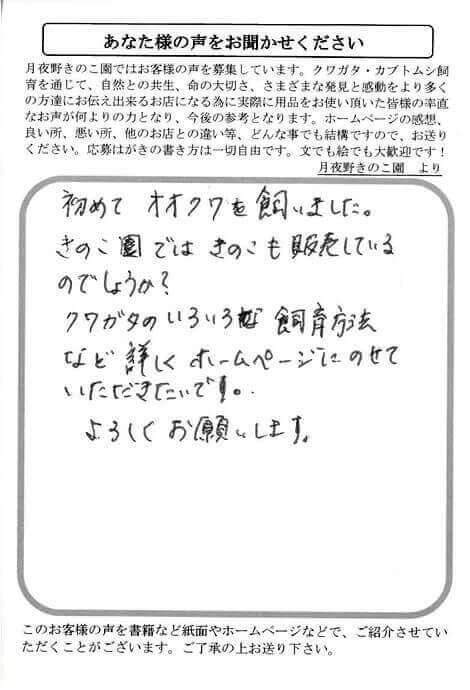 あなた様の声をお聞かせください
月夜野きのこ園ではお客様の声を募集しています。クワガタ・カブトムシ飼
育を通じて、自然との共生、命の大切さ、さまざまな発見と感動をより多く
の方達にお伝え出来るお店になる為に実際に用品をお使い頂いた皆様の率直
なお声が何よりの力となり、今後の参考となります。ホームページの感想、
良い所、悪い所、他のお店との違い等、どんな事でも結構ですので、お送り
ください。応募はがきの書き方は一切自由です。文でも絵でも大歓迎です！
月夜野きのこ園　より
初めて オオクワを飼いました。
きのこ園では きのこも販売している
のでしょうか？
クワガタのいろいろな 飼育方法
など 詳しく ホームページにのせて
いただきたいです。
よろしく お願いします。
このお客様の声を書籍など紙面やホームページなどで、ご紹介させてい
ただくことがございます。ご了承の上お送り下さい。